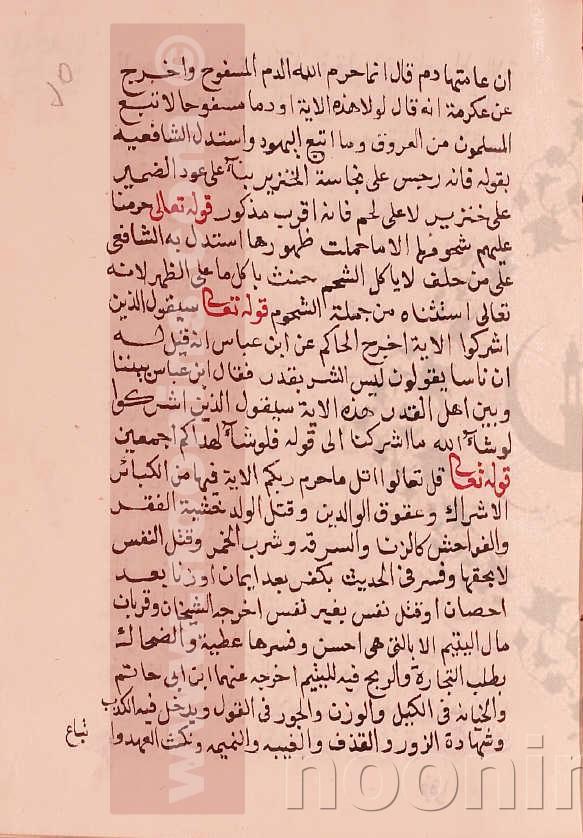 ان عامتها دم قال انما حرم الله الدم المسفوح واخرج
عن عكرمة انه قال لولا هذه الاية او دما مسفوحا لاتبع
المسلمون من العروق وما اتبع اليهود واستدل الشافعية
بقوله فانه رجس على نجاسة الخنزير بنآء على عود الضمير
على خنزير لا على لحم فانه اقرب مذكور قوله تعالى حرمنا
عليهم شحومهما الا ما حملت ظهورهما استدل به الشافعي
على من حلف لا ياكل الشحم حنث باكل ما على الظهر لانه
تعالى استثناه من جملة الشحوم قوله تعالى سيقول الذين
اشركوا الاية اخرج الحاكم عن ابن عباس انه قيل له
ان ناسا يقولون ليس الشر بقدر فقال ابن عباس بيننا
وبين اهل القدر هذه الاية سيقول الذين اشركوا
لو شآء الله ما اشركنا الى قوله فلو شآء لهداكم اجمعين
قوله تعالى قل تعالوا اتل ما حرم ربكم الاية فيها من الكبائر
الاشراك وعقوق الوالدين وقتل الولد خشية الفقر
والفواحش كالزنا والسرقه وشرب الخمر وقتل النفس
لا بحقها وفسر في الحديث بكفر بعد ايمان او زنا بعد
احصان او قتل نفس بغير نفس اخرجه الشيخان وقربان
مال اليتيم الا بالتي هي احسن وفسرها عطية والضحاك
بطلب التجارة والربح فيه لليتيم اخرجه عنهما ابن ابي حاتم
والخيانه في الكيل والوزن والجور في القول ويدخل فيه الكذب
وشهادة الزور والقذف والغيبه والنميمه ونكث العهد وا
تباع
noonin